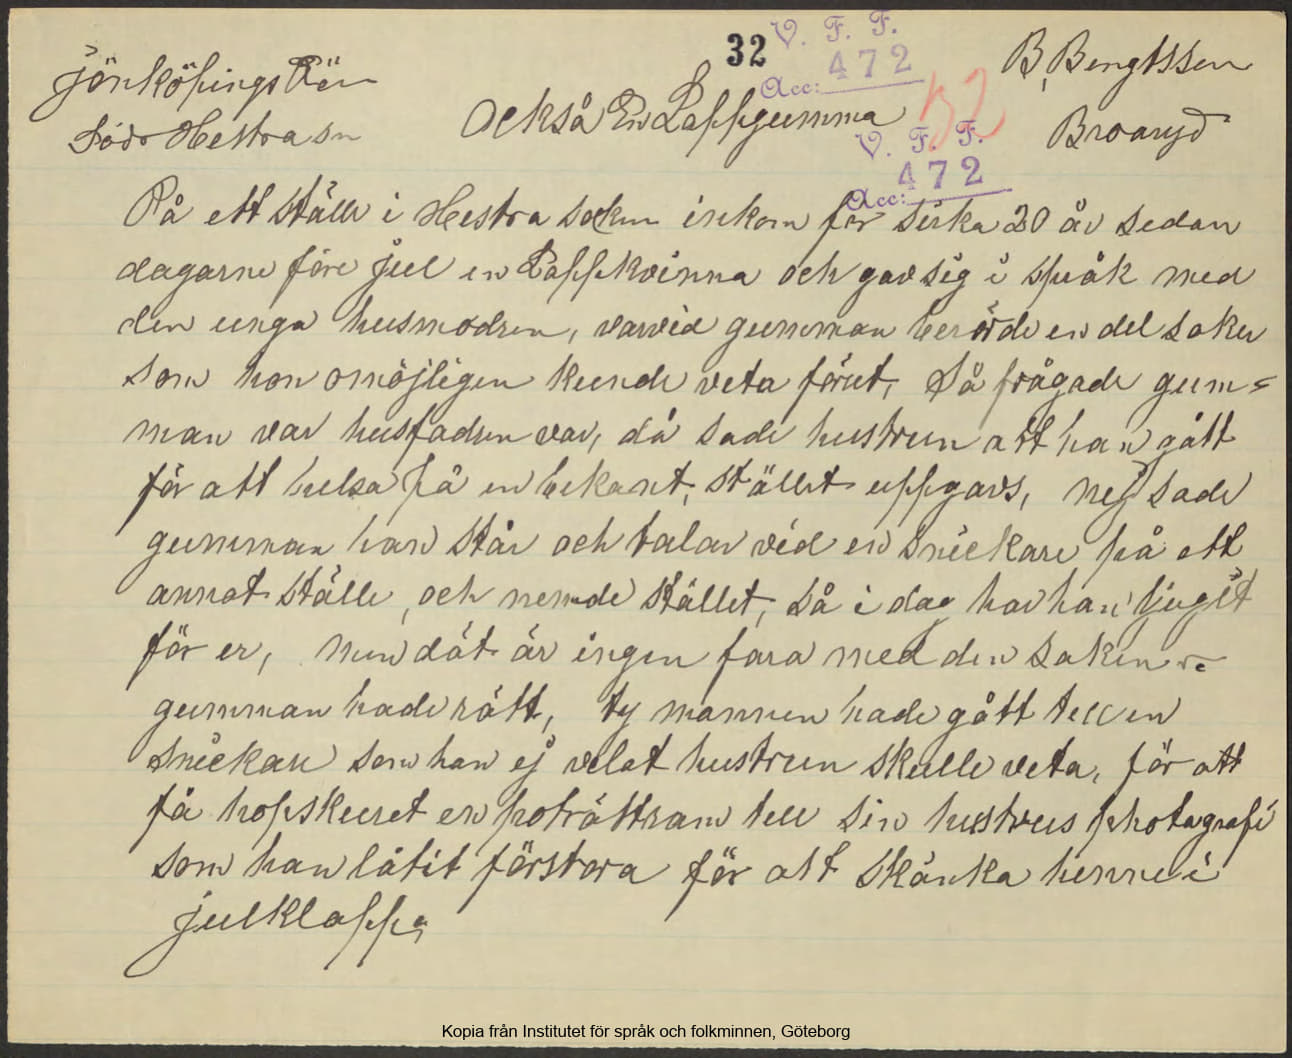 32
V. F. F.
Acc: 472
52
Jönköpings Län
Södr Hestra sn
B, Bengtssen
Broaryd
V. F. F.
Acc: 472
Också En Lappgumma
På ett ställe i Hestra sockn inkom för sirka 20 år sedan
dagarne före jul en Lappkvinna och gav sig i språk med
den unga husmodren, varvid gumman berörde en del saker
som hon omöjligen kunde veta förut, Så frågade gum=
man var husfadren var, då sade hustrun att han gått
för att helsa på en bekant, stället uppgavs, nej sade
gumman han står och talar vid en snickare på ett
annat ställe, och nemde stället, så i dag har han ljugit
för er, men dät är ingen fara med den saken
gumman hade rätt, ty mannen hade gått till en
snickare som han ej velat hustrun skulle veta, för att
få hopskuret en poträttram till sin hustrus photografi
som han låtit förstora för att skänka henne i
julklapp,
Kopia från Institutet för språk och folkminnen, Göteborg